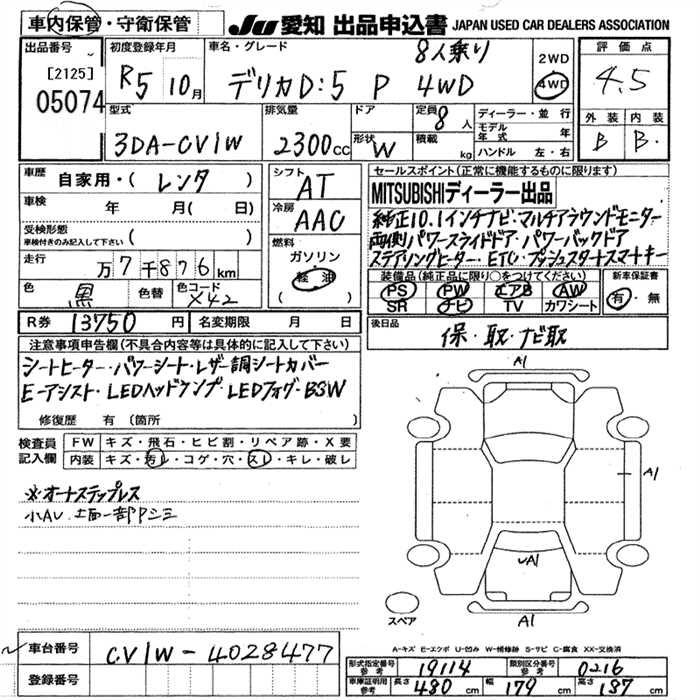 車内保管・守衛保管 JU 愛知 出品申込書 JAPAN USED CAR DEALERS ASSOCIATION
出品番号 [2125] 05074
初度登録年月 R5 10月
車名・グレード 8人乗り デリカD:5 P 4WD
2WD 4WD
評価点 4.5
外装 内装
B B
型式 3DA-CV1W
排気量 2300cc
ドア
形状 W
定員 8人
積載 kg
ディーラー・並行
モデル年式 年
ハンドル 左・右
車歴 自家用・( レンタ )
車検 年 月( 日)
受検形態 車検付きのみ記入して下さい ( )
走行 万7千876km
色 黒 色替 色コード X42
シフト AT
冷房 AAC
燃料 ガソリン (軽油)
セールスポイント(正常に機能するものに限ります)
MITSUBISHIディーラー出品
純正10.1インチナビ・マルチアラウンドモニター
両側パワースライドドア・パワーバックドア
ステアリングヒーター・ETC・プッシュスタートスマートキー
装備品(純正品に限り○をつけてください) 新車保証書
PS PW エアB AW 有・無
SR ナビ TV カワシート
R券 13750円 名変期限 月 日
後日品 保・取・ナビ取
注意事項申告欄(不具合内容等は具体的に記入して下さい)
シートヒーター・パワーシート・レザー調シートカバー
E-アシスト・LEDヘッドランプ・LEDフォグ・BSW
修復歴 有(箇所 )
検査員記入欄
FW キズ・飛石・ヒビ割・リペア跡・X要
内装 キズ・汚レ・コゲ・穴・スレ・キレ・破レ
※オートステップレス
小AU
A1
A1
A1
A1
スペア
A-キズ E-エクボ U-凹み W-補修跡 S-サビ C-腐食 XX-交換済
車台番号 CV1W-4028477
登録番号
形式指定番号 参考 19114 類別区分番号 参考 0216
車庫証明用 参考 長さ 480cm 幅 179cm 高さ 187cm